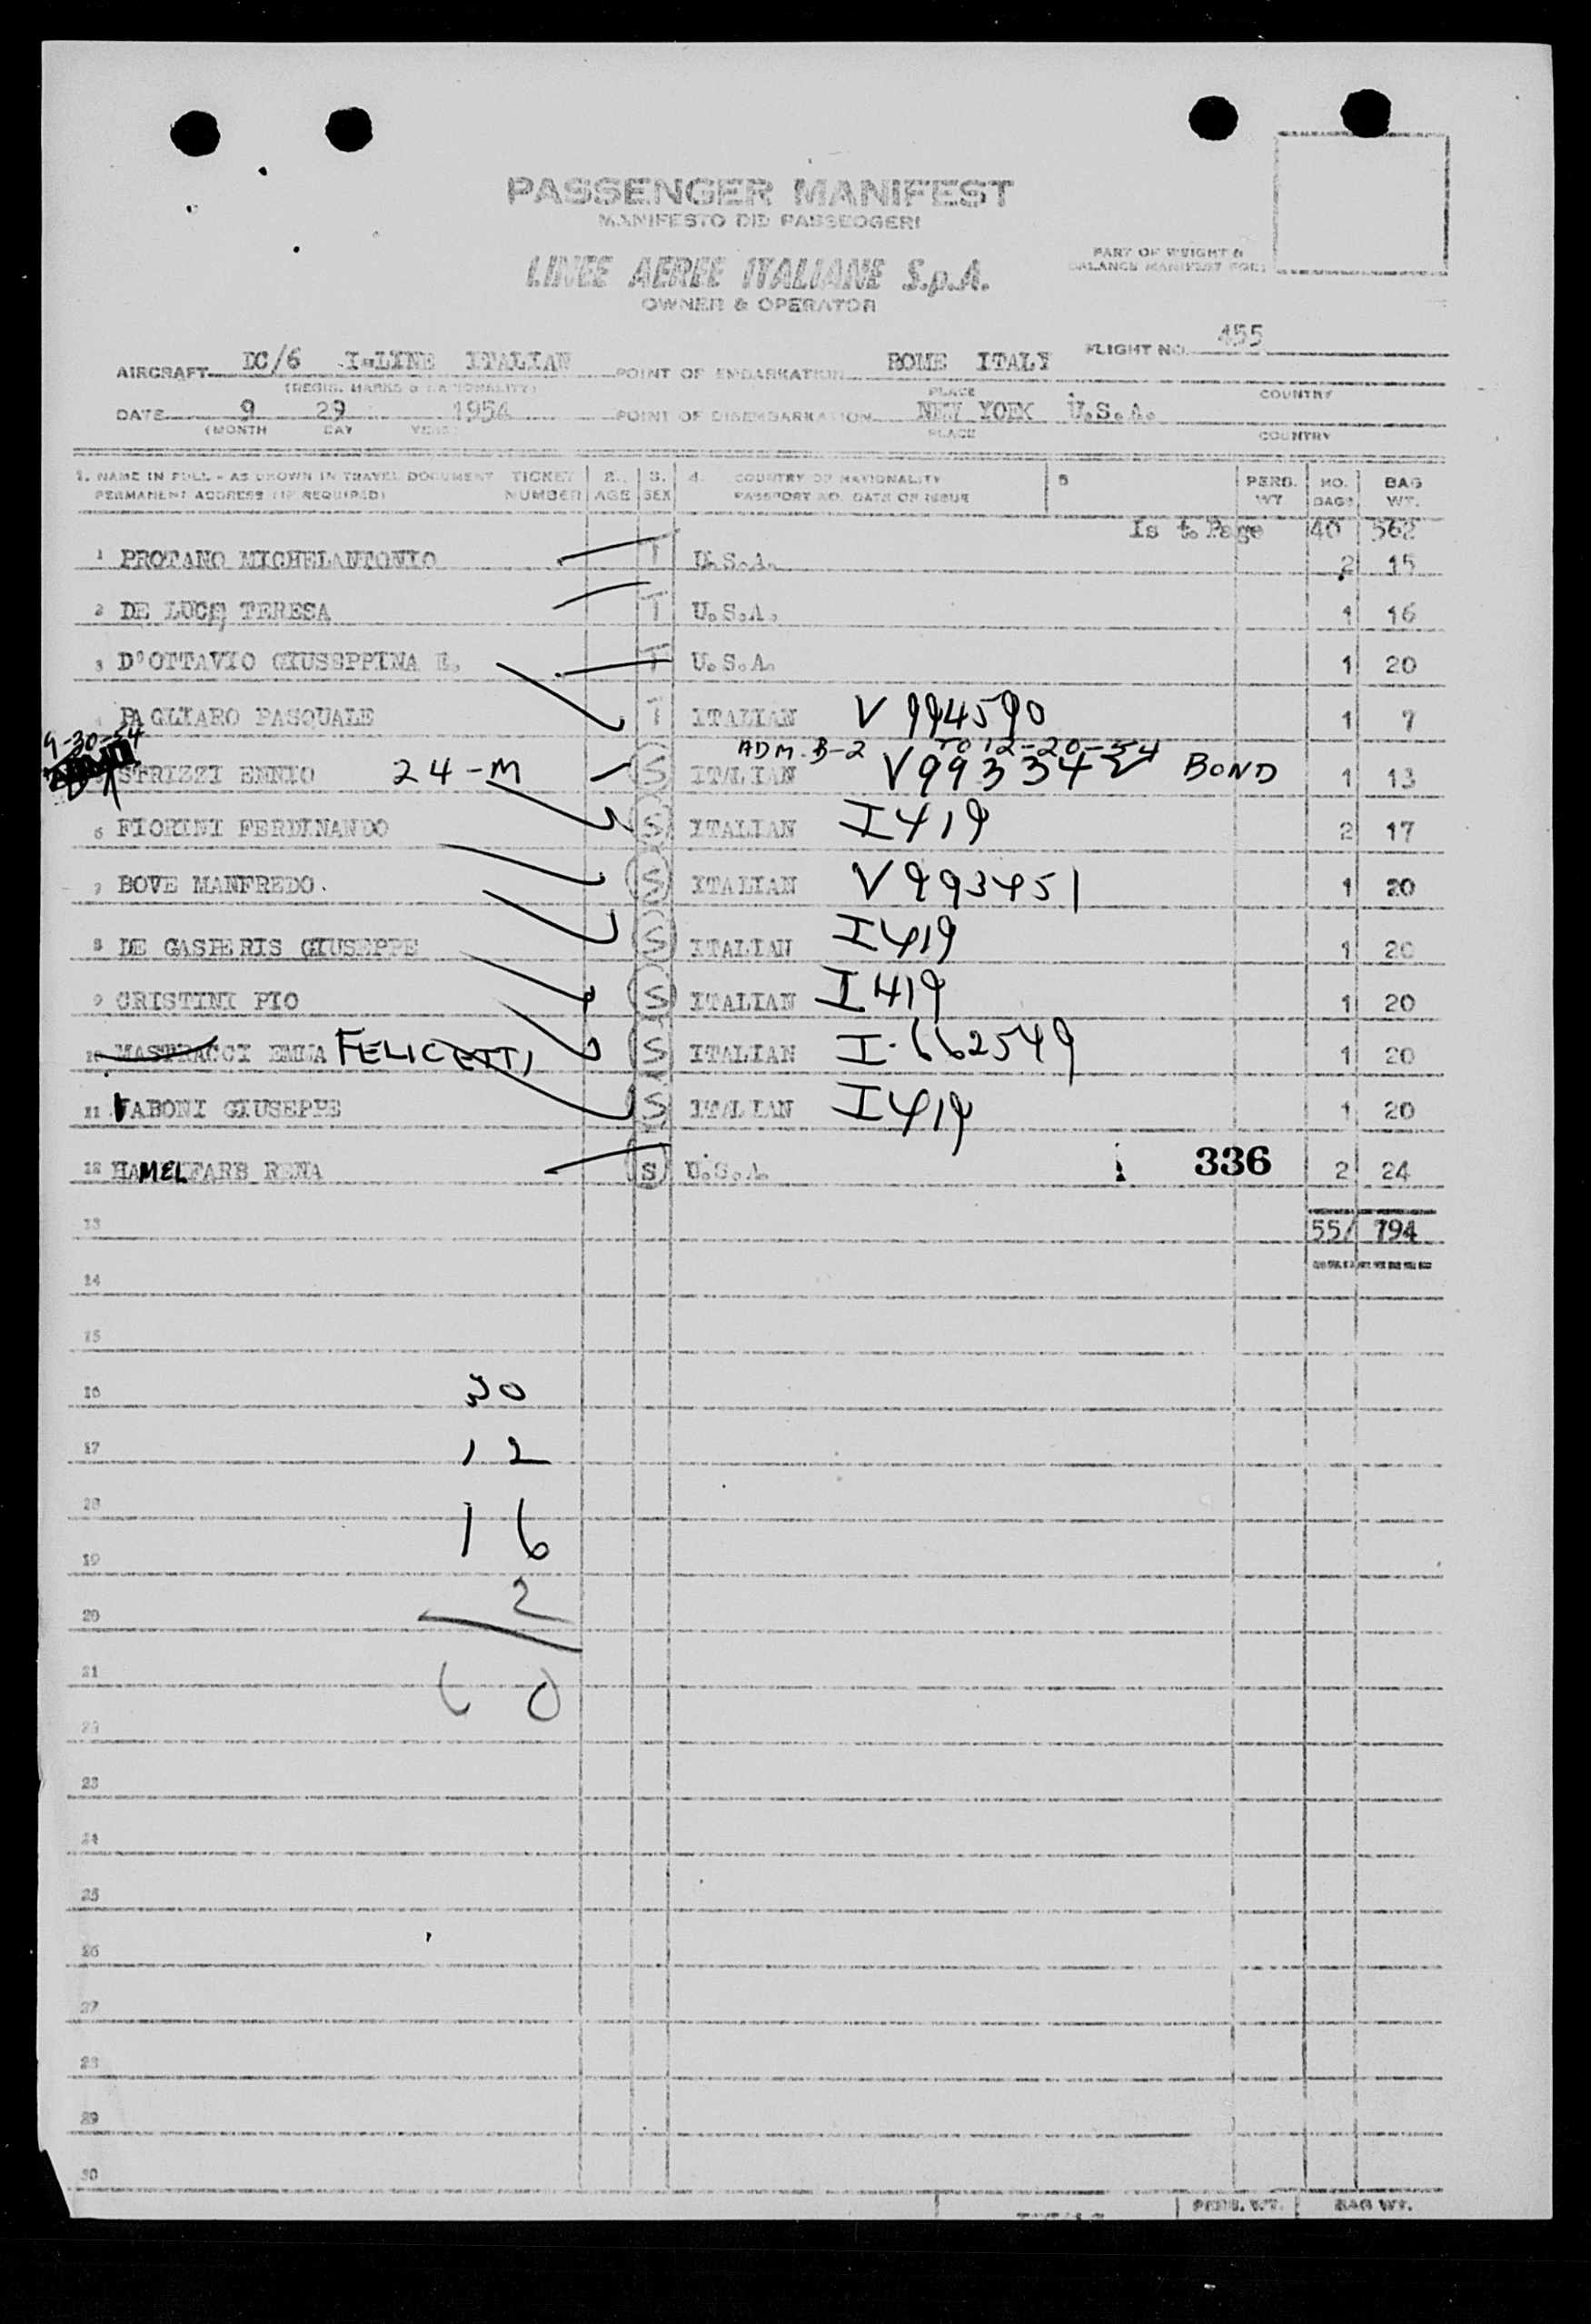 PASSENGER MANIFEST
MANIFESTO DEI PASSEGGERI
LINEE AEREE ITALIANE S.p.A.
OWNER & OPERATOR
PART OF WEIGHT &
BALANCE MANIFEST FOR:
AIRCRAFT DC/6 I-LINE ITALIAN POINT OF EMBARKATION ROME ITALY FLIGHT NO. 455
(REGIS. MARKS & NATIONALITY) PLACE COUNTRY
DATE 9 29 1954 POINT OF DISEMBARKATION NEW YORK U.S.A.
(MONTH DAY YEAR PLACE COUNTRY
1. NAME IN FULL - AS SHOWN IN TRAVEL DOCUMENT TICKET 2. 3. 4. COUNTRY OF NATIONALITY 5 PERS. NO. BAG
PERMANENT ADDRESS (IF REQUIRED) NUMBER AGE SEX PASSPORT NO. DATE OF ISSUE WT BAGS WT.
Is to Page 40 562
1 PROTANO MICHELANTONIO T U.S.A. 2 15
2 DE LUCE TERESA T U.S.A. 1 16
3 D'OTTAVIO GIUSEPPINA E. T U.S.A. 1 20
4 PAGLIARO PASQUALE T ITALIAN V 994590 1 7
9-30-54 ADM. B-2 TO 12-20-54
STRIZZI ENNIO 24-M S ITALIAN V993345 BOND 1 13
6 FIORINI FERDINANDO S ITALIAN I419 2 17
7 BOVE MANFREDO. S ITALIAN V993451 1 20
8 DE GASPERIS GIUSEPPE S ITALIAN I419 1 20
9 CRISTINI PIO S ITALIAN I419 1 20
10 MASTRACCI EMMA FELICETTI S ITALIAN I-662549 1 20
11 TABONI GIUSEPPE S ITALIAN I419 1 20
12 HAMELFARB RENA S U.S.A. 336 2 24
13 55/ 794
14
15
16 30
17 12
18 16
19 2
20
21 60
22
23
24
25
26
27
28
29
30
PERS. WT. BAG WT.